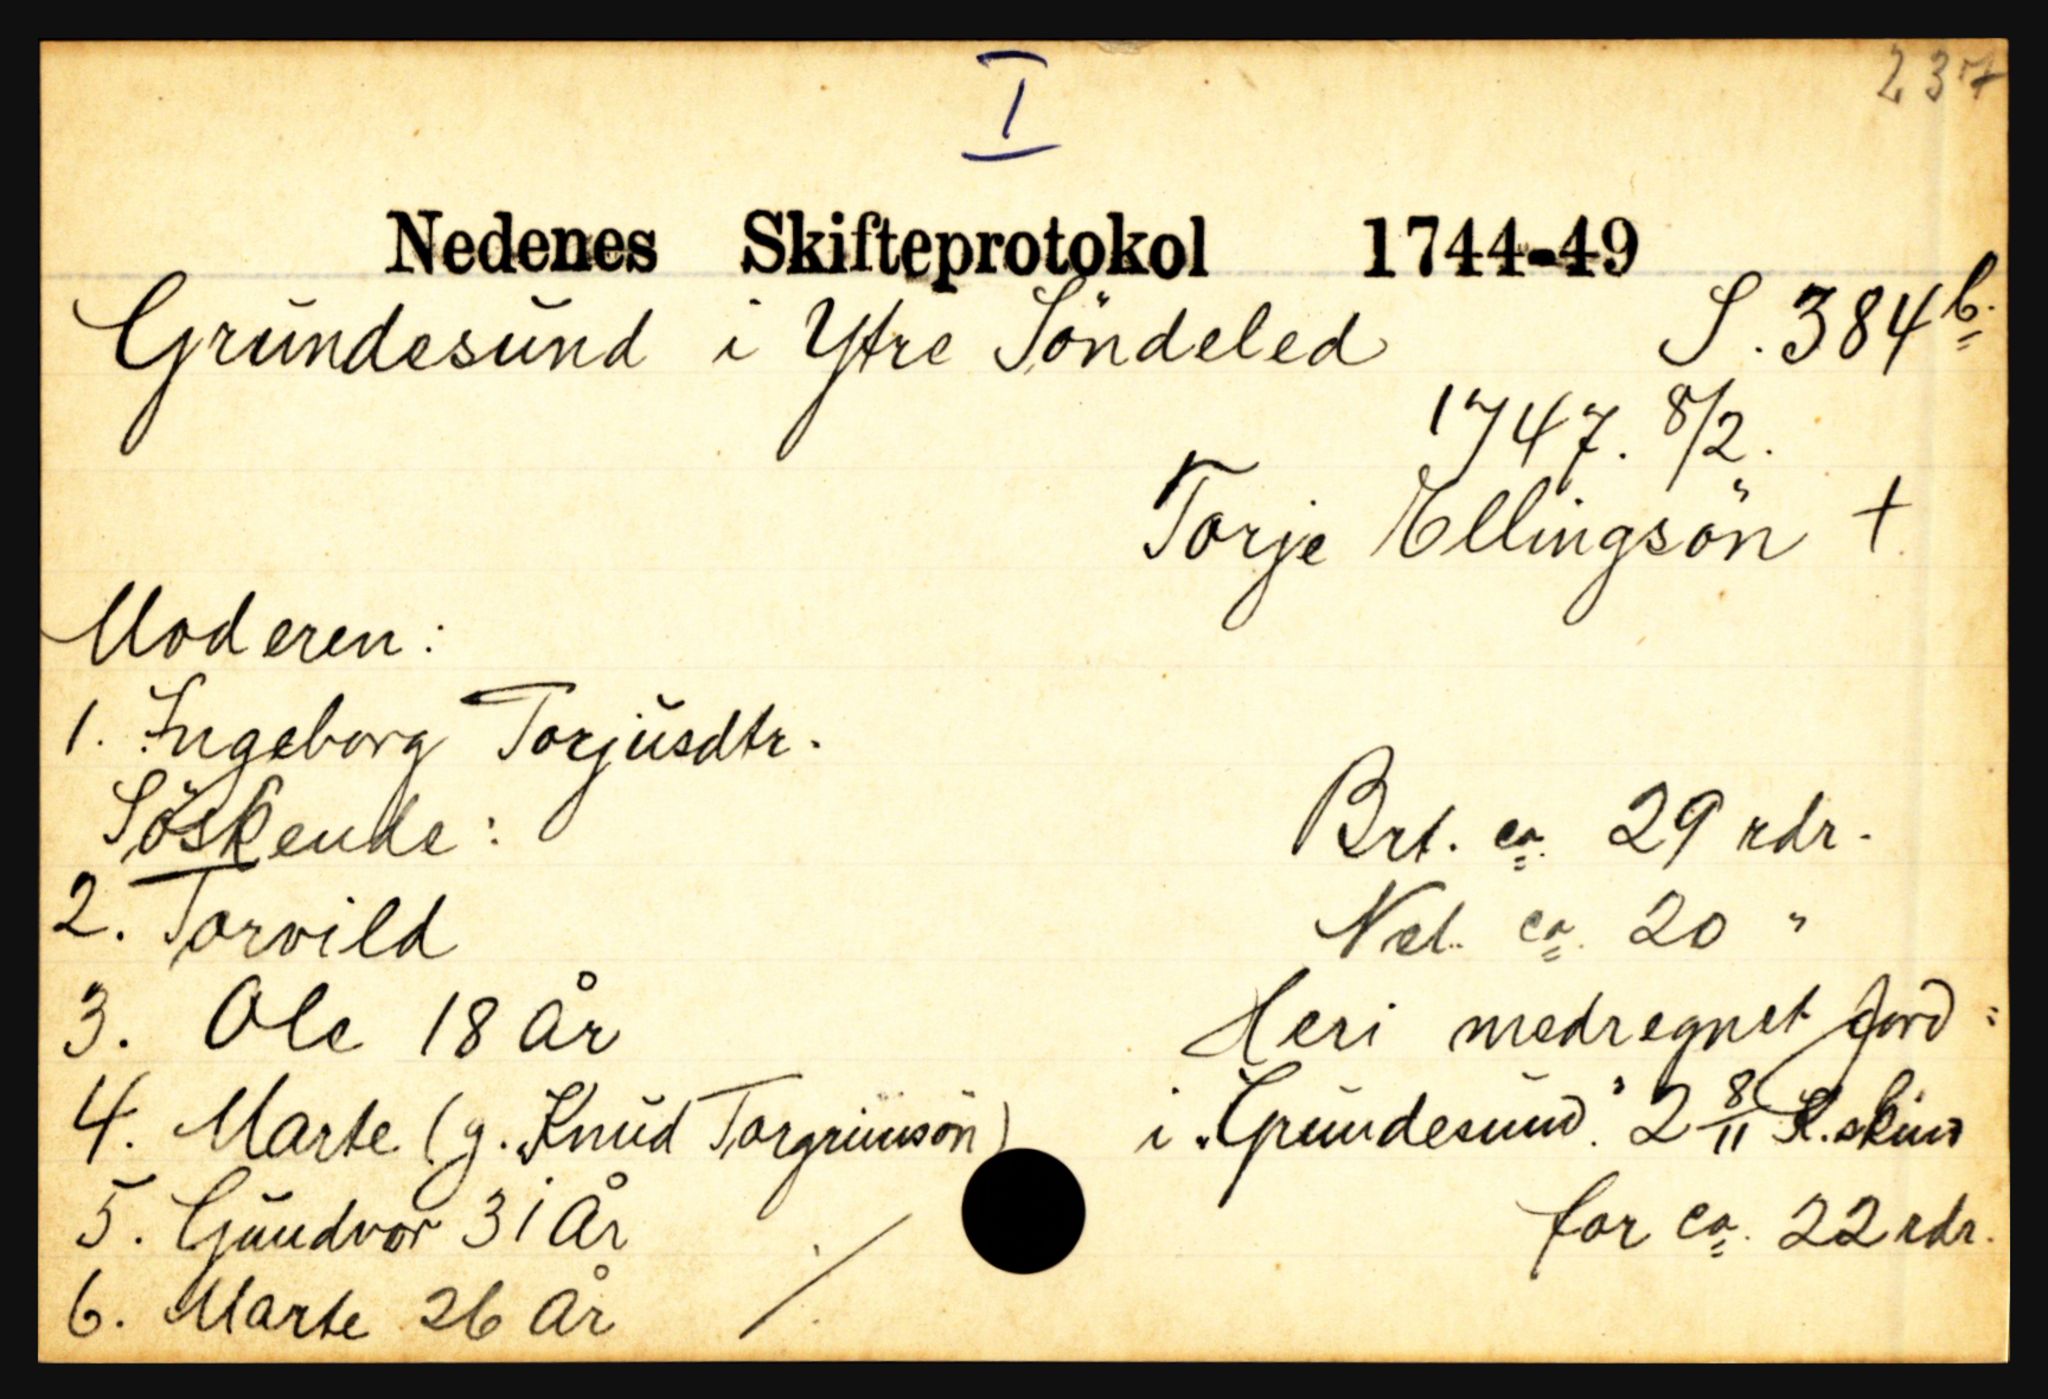 I
237
Nedenes Skifteprotokol 1744-49
Grundesund i Ytre Söndeled S. 384b.
1747. 8/2.
Torje Ellingsön +
Moderen:
1. Ingeborg Torjusdtr.
Söskende:
2. Torvild
3. Ole 18 år
4. Marte (g. Knud Torgrimsön)
5. Gundvor 31 år
6. Marte 26 år
Brt. ca. 29 rdr.
Net. ca. 20 "
Heri medregnet jord:
i „Grundesund" 2 8/11 K.skind
for ca. 22 rdr.